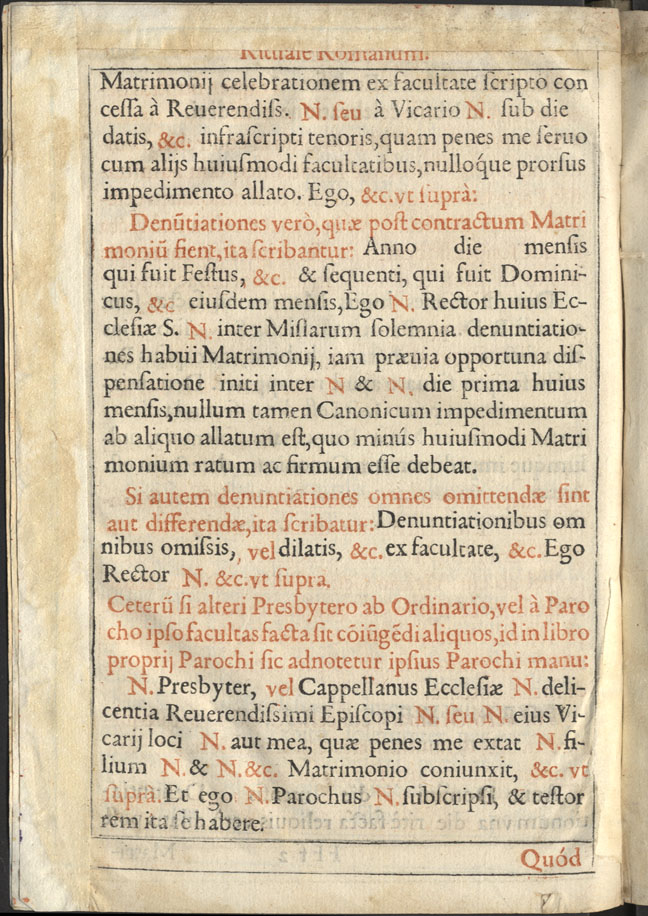 Rituale Romanum.
Matrimonij celebrationem ex facultate ſcripto con
ceſſa à Reuerendiſs. N. ſeu à Vicario N. ſub die
datis, &c. infraſcripti tenoris, quam penes me ſeruo
cum alijs huiuſmodi facultatibus, nulloq́ue prorſus
impedimento allato. Ego, &c. vt ſuprà:
Denũtiationes verò, quæ poſt contractum Matri
moniũ fient, ita ſcribantur: Anno die menſis
qui fuit Feſtus, &c. & ſequenti, qui fuit Domini-
cus, &c eiuſdem menſis, Ego N. Rector huius Ec-
cleſiæ S. N. inter Miſſarum ſolemnia denuntiatio-
nes habui Matrimonij, iam præuia opportuna diſ-
penſatione initi inter N & N. die prima huius
menſis, nullum tamen Canonicum impedimentum
ab aliquo allatum eſt, quo minús huiuſmodi Matri
monium ratum ac firmum eſſe debeat.
Si autem denuntiationes omnes omittendæ ſint
aut differendæ, ita ſcribatur: Denuntiationibus om
nibus omiſsis, vel dilatis, &c. ex facultate, &c. Ego
Rector N. &c. vt ſupra.
Ceterũ ſi alteri Presbytero ab Ordinario, vel à Paro
cho ipſo facultas facta ſit cõiũgẽdi aliquos, id in libro
proprij Parochi ſic adnotetur ipſius Parochi manu:
N. Presbyter, vel Cappellanus Eccleſiæ N. de li-
centia Reuerendiſsimi Epiſcopi N. ſeu N. eius Vi-
carij loci N. aut mea, quæ penes me extat N. fi-
lium N. & N. &c. Matrimonio coniunxit, &c. vt
ſuprà. Et ego N. Parochus N. ſubſcripſi, & teſtor
rem ita ſe habere.
Quód